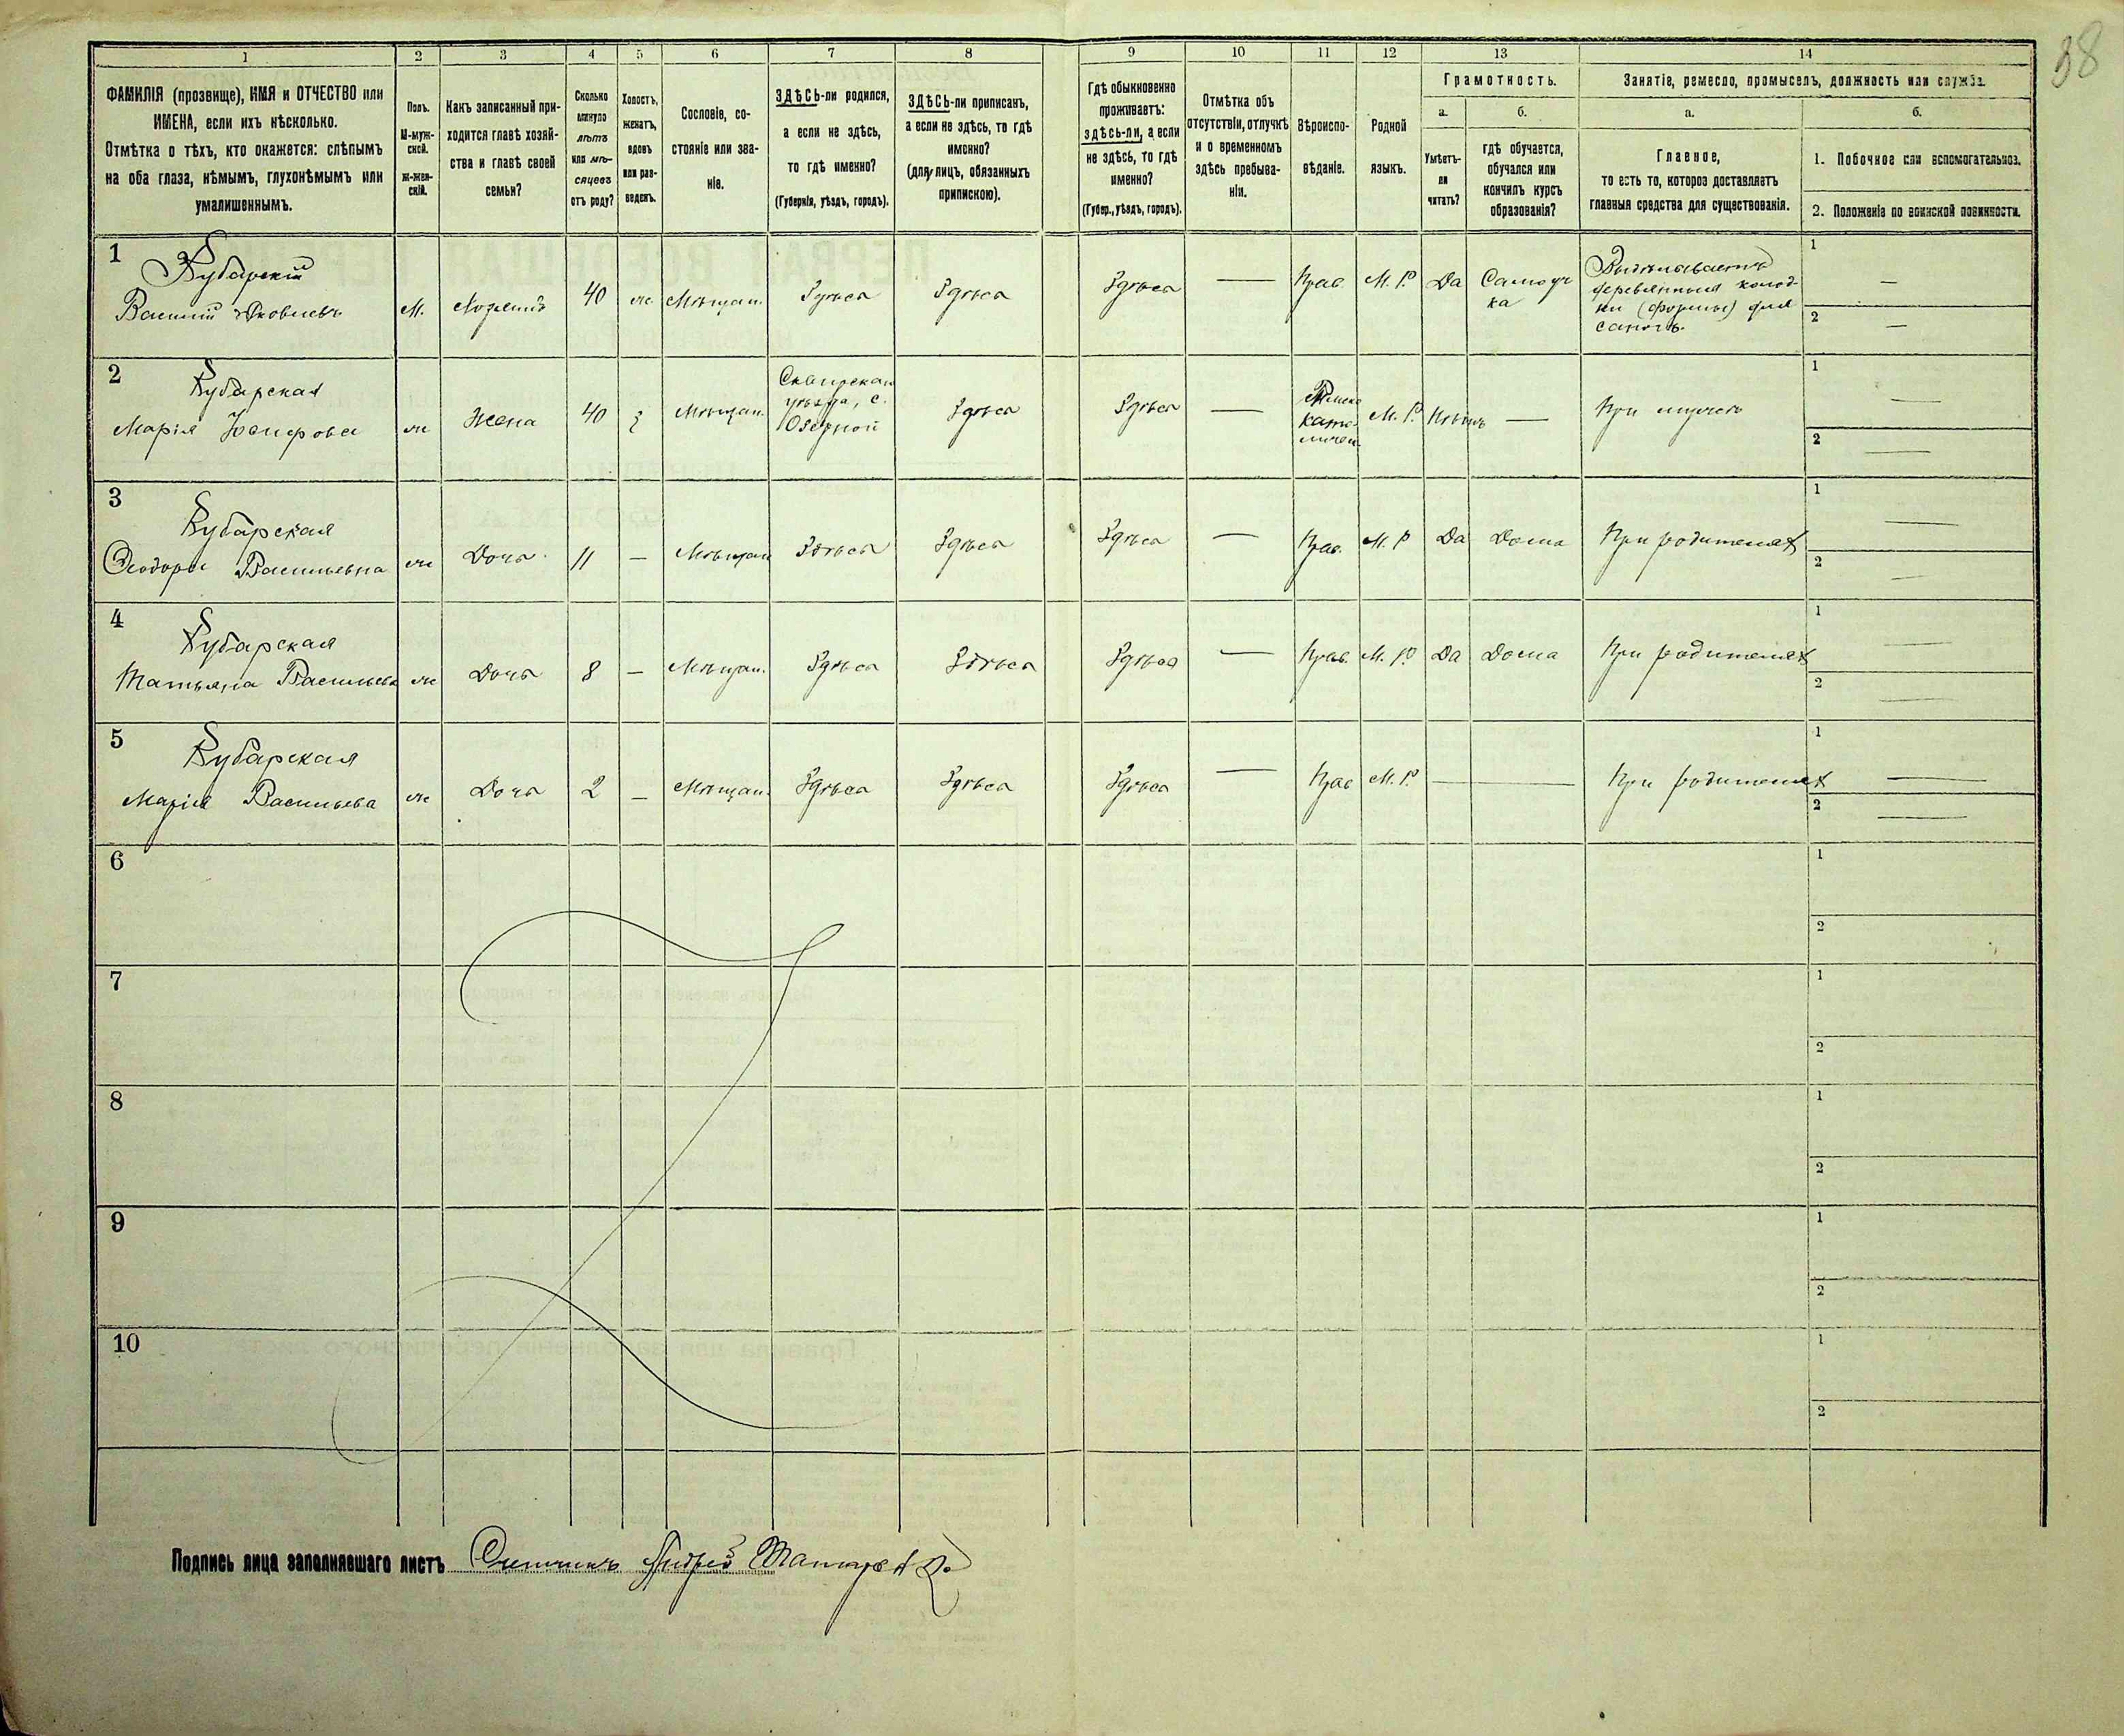 38
1 2 3 4 5 6 7 8 9 10 11 12 13 14
ФАМИЛІЯ (прозвище), ИМЯ и ОТЧЕСТВО или
ИМЕНА, если ихъ нѣсколько.
Отмѣтка о тѣхъ, кто окажется: слѣпымъ
на оба глаза, нѣмымъ, глухонѣмымъ или
умалишеннымъ.
Полъ.
М-муж-
ской.
Ж-жен-
скій.
Какъ записанный при-
ходится главѣ хозяй-
ства и главѣ своей
семьи?
Сколько
минуло
лѣтъ
или мѣ-
сяцевъ
отъ роду?
Холостъ,
женатъ,
вдовъ
или раз-
веденъ.
Сословіе, со-
стояніе или зва-
ніе.
ЗДѢСЬ-ли родился,
а если не здѣсь,
то гдѣ именно?
(Губернія, уѣздъ, городъ).
ЗДѢСЬ-ли приписанъ,
а если не здѣсь, то гдѣ
именно?
(для лицъ, обязанныхъ
припискою).
Гдѣ обыкновенно
проживаетъ:
здѣсь-ли, а если
не здѣсь, то гдѣ
именно?
(Губер., уѣздъ, городъ).
Отмѣтка объ
отсутствіи, отлучкѣ
и о временномъ
здѣсь пребыва-
ніи.
Вѣроиспо-
вѣданіе.
Родной
языкъ.
Грамотность.
а.
Умѣетъ-
ли
читать?
б.
гдѣ обучается,
обучался или
кончилъ курсъ
образованія?
Занятіе, ремесло, промыселъ, должность или служба.
а.
Главное,
то есть то, которое доставляетъ
главныя средства для существованія.
б.
1. Побочное или вспомогательное.
2. Положеніе по воинской повинности.
1
Кубарскій
Василій Яковлевъ
М.
Хозяинъ
40
ж.
Мѣщан.
Здѣсь
Здѣсь
Здѣсь
—
Прав.
М. Р.
Да
Самоуч
ка
Выдѣлываетъ
деревянныя колод-
ки (формы) для
сапогъ.
1 —
2 —
2
Кубарская
Марія Іосифова
ж
Жена
40
з
Мѣщан.
Сквирскаго
уѣзда, с.
Озерной
Здѣсь
Здѣсь
—
Римско
като-
лическ
М. Р.
Нѣтъ
—
При мужѣ
1 —
2 —
3
Кубарская
Ѳеодора Васильевна
ж
Дочь
11
—
Мѣщан
Здѣсь
Здѣсь
Здѣсь
—
Прав.
М. Р
Да
Дома
При родителях
1 —
2 —
4
Кубарская
Татьяна Васильева
ж
Дочь
8
—
Мѣщан.
Здѣсь
Здѣсь
Здѣсь
—
Прав.
М. Р.
Да
Дома
При родителях
1 —
2 —
5
Кубарская
Марія Васильева
ж
Дочь
2
—
Мѣщан.
Здѣсь
Здѣсь
Здѣсь
—
Прав
М. Р.
—
—
При родителях
1 —
2 —
6
1
2
7
1
2
8
1
2
9
1
2
10
1
2
Подпись лица заполнявшаго листъ Счетчикъ Андрей